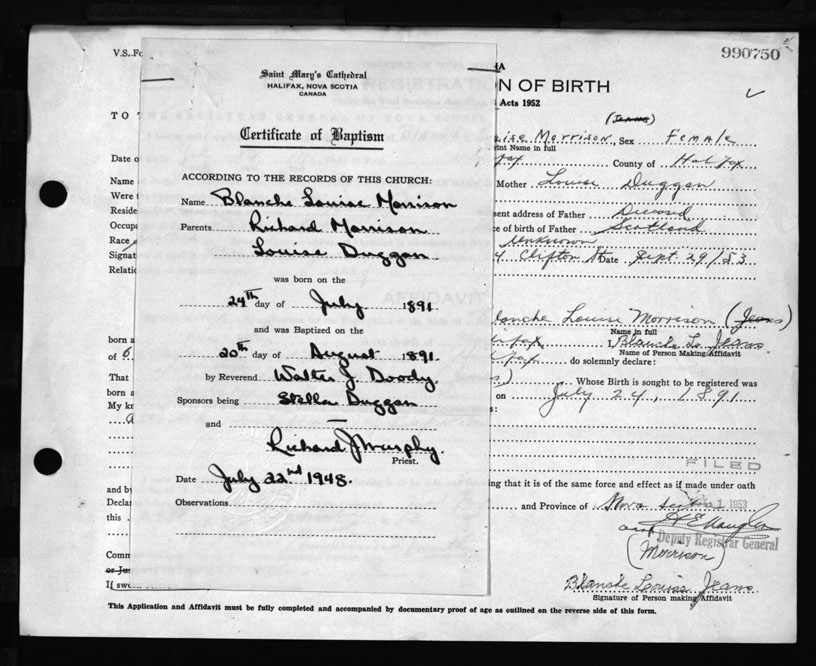 990750
V.S. Fo
Saint Mary's Cathedral
HALIFAX, NOVA SCOTIA
CANADA
Certificate of Baptism
ACCORDING TO THE RECORDS OF THIS CHURCH:
Name Blanche Louise Morrison
Parents Richard Morrison
Louise Duggan
was born on the
24th day of July 1891
and was Baptized on the
20th day of August 1891
by Reverend Walter J. Doody.
Sponsors being Stella Duggan
and —
Richard J Murphy.
Priest.
Date July 22nd 1948.
Observations
TO T
Date o
Name
Were t
Reside
Occupa
Race
Signat
Relatic
born a
of
That
born a
My kn
and by
Declar
this
Comm
or Jus
If swo
IA
N OF BIRTH
Acts 1952
(Jeans)
uise Morrison, Sex Female
rint Name in full
fax County of Halifax
Mother Louise Duggan
sent address of Father Diecesd
ce of birth of Father Scotland
Unknown
Clifton St Date Sept. 29/53
lanche Louise Morrison (Jeans)
Name in full
lifax I, Blanche L. Jeans.
Name of Person Making Affidavit
fax do solemnly declare:
) Whose Birth is sought to be registered was
on July 24, 1891
s:
FILED
ng that it is of the same force and effect as if made under oath
and Province of Nova Scotia
1 1953
Deputy Registrar General
(Morrison)
Blanche Louise Jeans
Signature of Person making Affidavit
This Application and Affidavit must be fully completed and accompanied by documentary proof of age as outlined on the reverse side of this form.